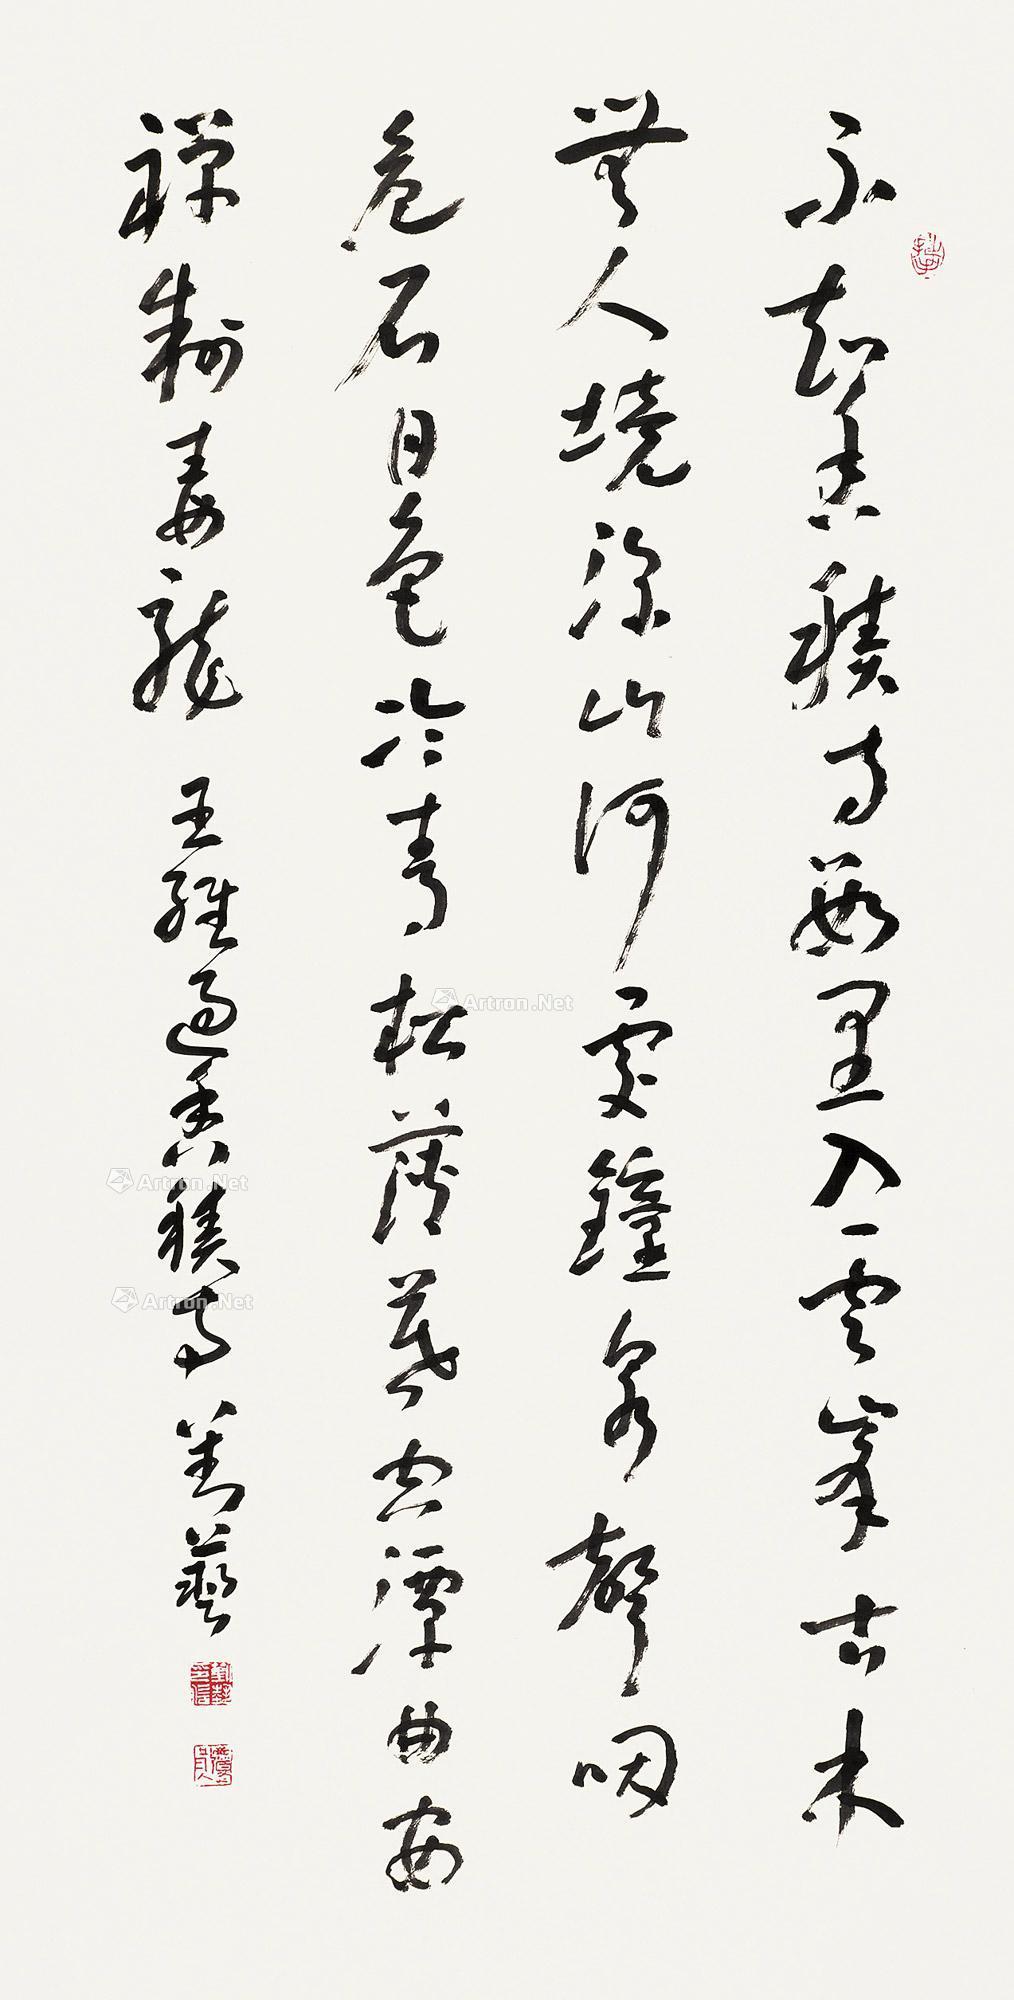 不知香積寺數里入雲峯古木
無人境深山何處鐘泉聲咽
危石日色冷青松薄暮空潭曲安
禪制毒龍 王維過香積寺 劉藝
Artron.Net
Artron.Net
Artron.Net